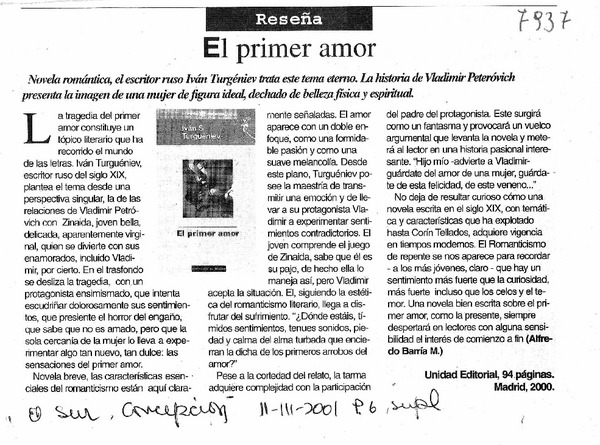 Reseña
7937
El primer amor
Novela romántica, el escritor ruso Iván Turgéniev trata este tema eterno. La historia de Vladimir Peteróvich
presenta la imagen de una mujer de figura ideal, dechado de belleza física y espiritual.
La tragedia del primer
amor constituye un
tópico literario que ha
recorrido el mundo
de las letras. Iván Turguéniev,
escritor ruso del siglo XIX,
plantea el tema desde una
perspectiva singular, la de las
relaciones de Vladimir Petró-
vich con Zinaida, joven bella,
delicada, aparentemente virgi-
nal, quien se divierte con sus
enamorados, incluido Vladi-
mir, por cierto. En el trasfondo
se desliza la tragedia, con un
protagonista ensimismado, que intenta
escudriñar dolorosamente sus sentimien-
tos, que presiente el horror del engaño,
que sabe que no es amado, pero que la
sola cercanía de la mujer lo lleva a expe-
rimentar algo tan nuevo, tan dulce: las
sensaciones del primer amor.
Novela breve, las características esen-
ciales del romanticismo están aquí clara-
Iván S.
Turguéniev
El primer amor
mente señaladas. El amor
aparece con un doble en-
foque, como una formi-
dable pasión y como una
suave melancolía. Desde
este plano, Turguéniev po-
see la maestría de trans-
mitir una emoción y de lle-
var a su protagonista Vla-
dimir a experimentar sen-
timientos contradictorios. El
joven comprende el juego
de Zinaida, sabe que él es
su pajo, de hecho ella lo
maneja así, pero Vladimir
acepta la situación. El, siguiendo la estéti-
ca del romanticismo literario, llega a dis-
frutar del sufrimiento. "¿Dónde estáis, tí-
midos sentimientos, tenues sonidos, pie-
dad y calma del alma turbada que encie-
rran la dicha de los primeros arrobos del
amor?"
Pese a la cortedad del relato, la tarma
adquiere complejidad con la participación
del padre del protagonista. Este surgirá
como un fantasma y provocará un vuelco
argumental que levanta la novela y mete-
rá al lector en una historia pasional intere-
sante. "Hijo mío -advierte a Vladimir-
guárdate del amor de una mujer, guárda-
te de esta felicidad, de este veneno..."
No deja de resultar curioso cómo una
novela escrita en el siglo XIX, con temáti-
ca y características que ha explotado
hasta Corín Tellados, adquiere vigencia
en tiempos modernos. El Romanticismo
de repente se nos aparece para recordar
- a los más jóvenes, claro - que hay un
sentimiento más fuerte que la curiosidad,
más fuerte incluso que los celos y el te-
mor. Una novela bien escrita sobre el pri-
mer amor, como la presente, siempre
despertará en lectores con alguna sensi-
bilidad el interés de comienzo a fin (Alfre-
do Barría M.)
Unidad Editorial, 94 páginas.
Madrid, 2000.
El Sur, Concepción 11-III-2001 P.6, supl